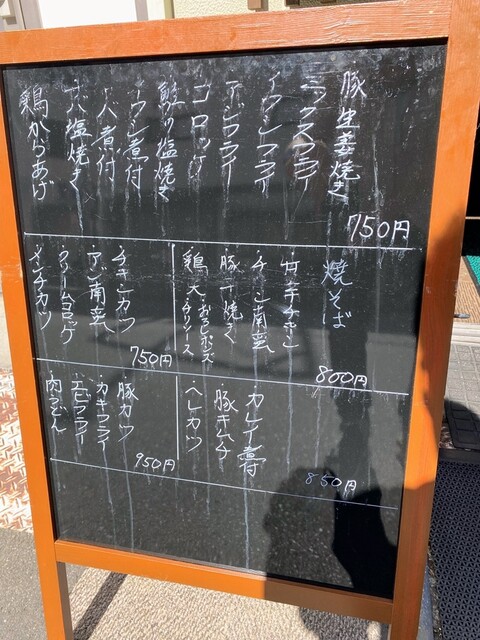 豚生姜焼き
ミックスフライ
イワシフライ
アジフライ
コロッケ
鮫の塩焼き
イワシ煮付
サバ煮付
サバ塩焼き
鶏からあげ
750円
焼そば
甘辛チキン
チキン南蛮
・豚一口焼き
・鶏天・おろしポンズ・チリソース
800円
・チキンカツ
・アジ南蛮
・クリームコロッケ
・メンチカツ
750円
・カレイ煮付
・豚キムチ
・ヘレカツ
850円
豚カツ
・カキフライ
・エビフライ
・肉うどん
950円